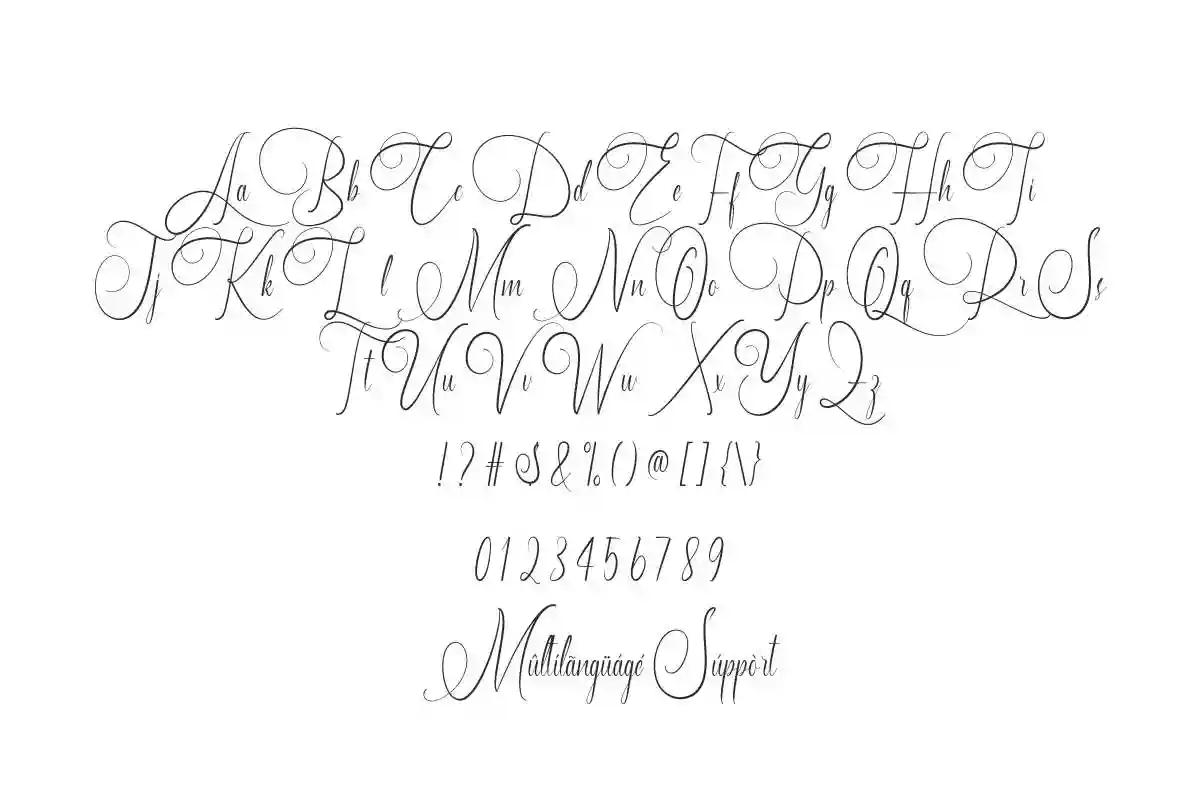 Aa Bb Cc Dd Ee Ff Gg Hh Ii
Jj Kk Ll Mm Nn Oo Pp Qq Rr Ss
Tt Uu Vv Ww Xx Yy Zz
!?#$&%()@[]{\}
0123456789
Mûltílãngüágé Súppòrt